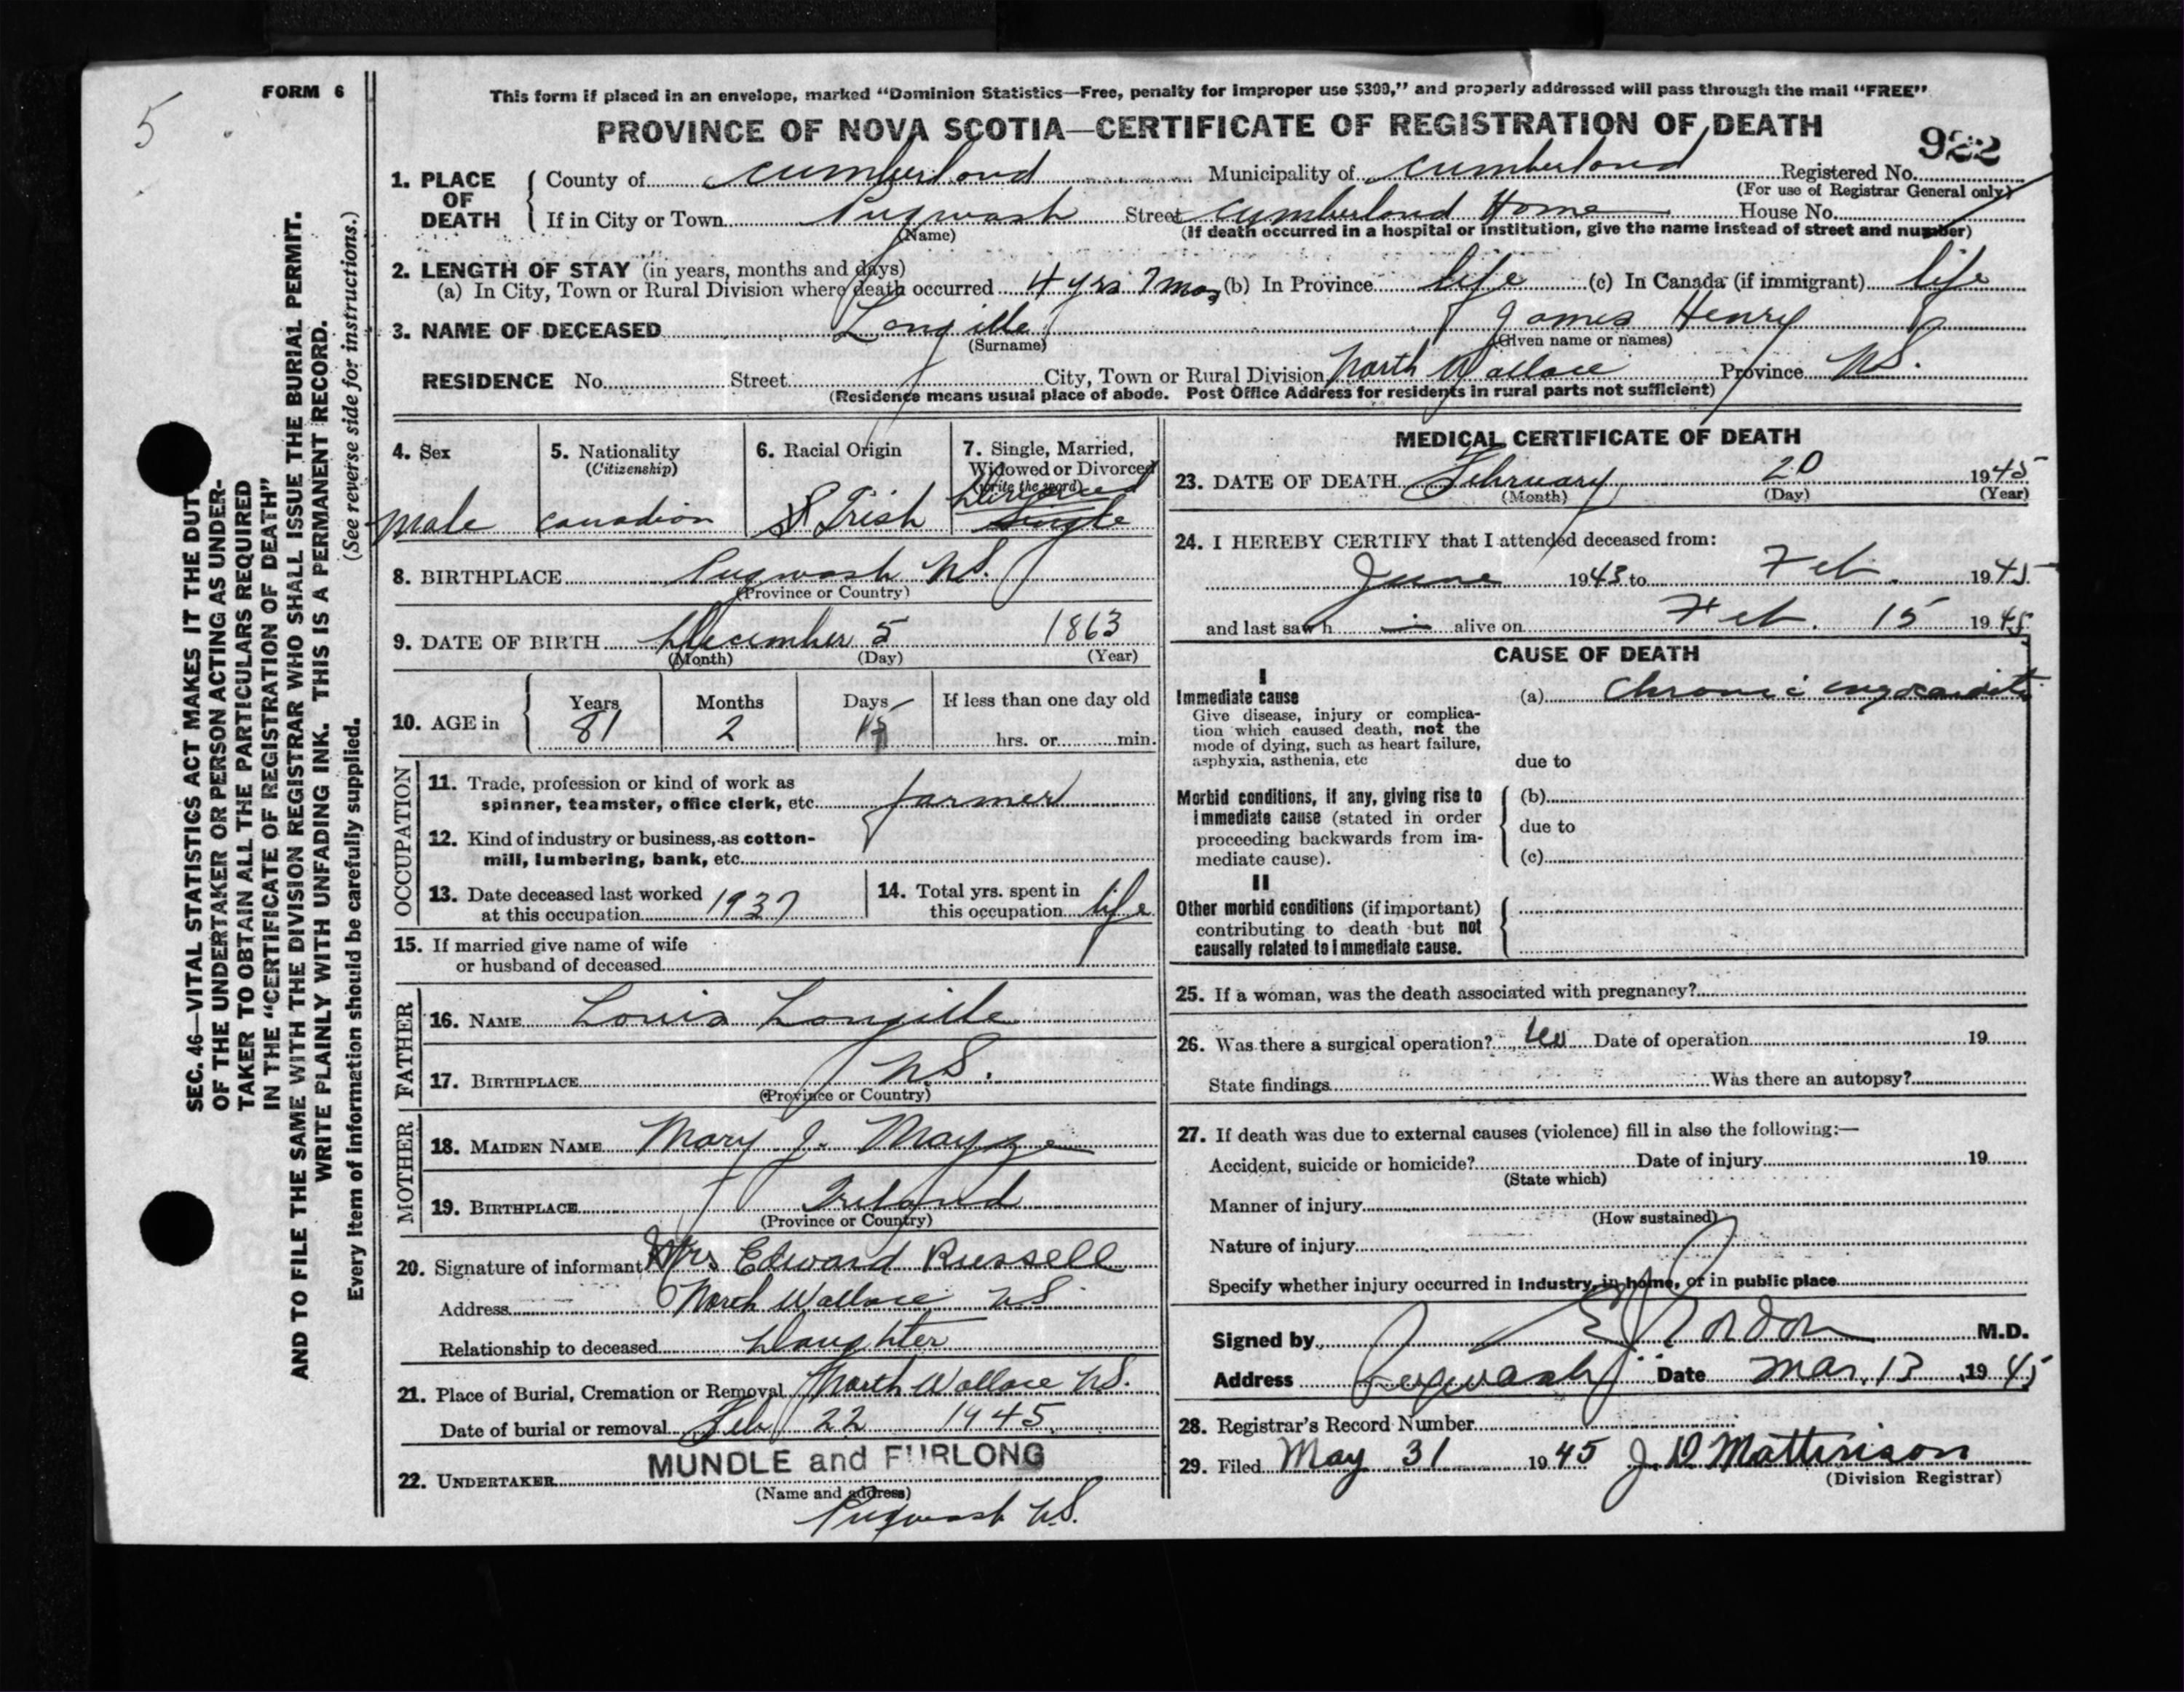 FORM 6
5
This form if placed in an envelope, marked “Dominion Statistics—Free, penalty for improper use $300,” and properly addressed will pass through the mail “FREE”
PROVINCE OF NOVA SCOTIA—CERTIFICATE OF REGISTRATION OF DEATH
922
1. PLACE OF DEATH
County of Cumberland Municipality of Cumberland Registered No.
(For use of Registrar General only)
If in City or Town Pugwash Street Cumberland Home House No.
(Name) (If death occurred in a hospital or institution, give the name instead of street and number)
2. LENGTH OF STAY (in years, months and days)
(a) In City, Town or Rural Division where death occurred 4 yrs 7 mos (b) In Province life (c) In Canada (if immigrant) life
3. NAME OF DECEASED Longille James Henry
(Surname) (Given name or names)
RESIDENCE No. Street City, Town or Rural Division North Wallace Province NS.
(Residence means usual place of abode. Post Office Address for residents in rural parts not sufficient)
4. Sex
male
5. Nationality
(Citizenship)
Canadian
6. Racial Origin
Irish
7. Single, Married,
Widowed or Divorced
(write the word)
Divorced
Single
8. BIRTHPLACE Pugwash NS.
(Province or Country)
9. DATE OF BIRTH December 5 1863
(Month) (Day) (Year)
10. AGE in
Years Months Days If less than one day old
81 2 15 hrs. or min.
OCCUPATION
11. Trade, profession or kind of work as
spinner, teamster, office clerk, etc. farmer
12. Kind of industry or business, as cotton-
mill, lumbering, bank, etc.
13. Date deceased last worked
at this occupation 1937
14. Total yrs. spent in
this occupation life
15. If married give name of wife
or husband of deceased
FATHER
16. NAME Louis Longille
17. BIRTHPLACE N.S.
(Province or Country)
MOTHER
18. MAIDEN NAME Mary J.
19. BIRTHPLACE Ireland
(Province or Country)
20. Signature of informant Mrs Edward Russell
Address North Wallace NS
Relationship to deceased Daughter
21. Place of Burial, Cremation or Removal North Wallace NS.
Date of burial or removal Feb 22 1945
22. UNDERTAKER MUNDLE and FURLONG
(Name and address)
Pugwash NS.
MEDICAL CERTIFICATE OF DEATH
23. DATE OF DEATH February 20 1945
(Month) (Day) (Year)
24. I HEREBY CERTIFY that I attended deceased from:
June 1943 to Feb. 1945
and last saw h alive on Feb. 15 1945
CAUSE OF DEATH
I
Immediate cause
Give disease, injury or complica-
tion which caused death, not the
mode of dying, such as heart failure,
asphyxia, asthenia, etc
(a) Chronic myocarditis
due to
Morbid conditions, if any, giving rise to
immediate cause (stated in order
proceeding backwards from im-
mediate cause).
(b)
due to
(c)
II
Other morbid conditions (if important)
contributing to death but not
causally related to immediate cause.
25. If a woman, was the death associated with pregnancy?
26. Was there a surgical operation? Date of operation 19
State findings Was there an autopsy?
27. If death was due to external causes (violence) fill in also the following:—
Accident, suicide or homicide? Date of injury 19
(State which)
Manner of injury
(How sustained)
Nature of injury
Specify whether injury occurred in Industry, in home, or in public place
Signed by Gordon M.D.
Address Pugwash Date Mar. 13, 1945
28. Registrar's Record Number
29. Filed May 31 1945 J. D Mattinson
(Division Registrar)
SEC. 46—VITAL STATISTICS ACT MAKES IT THE DUTY
OF THE UNDERTAKER OR PERSON ACTING AS UNDER-
TAKER TO OBTAIN ALL THE PARTICULARS REQUIRED
IN THE “CERTIFICATE OF REGISTRATION OF DEATH”
AND TO FILE THE SAME WITH THE DIVISION REGISTRAR WHO SHALL ISSUE THE BURIAL PERMIT.
WRITE PLAINLY WITH UNFADING INK. THIS IS A PERMANENT RECORD.
Every item of information should be carefully supplied. (See reverse side for instructions.)